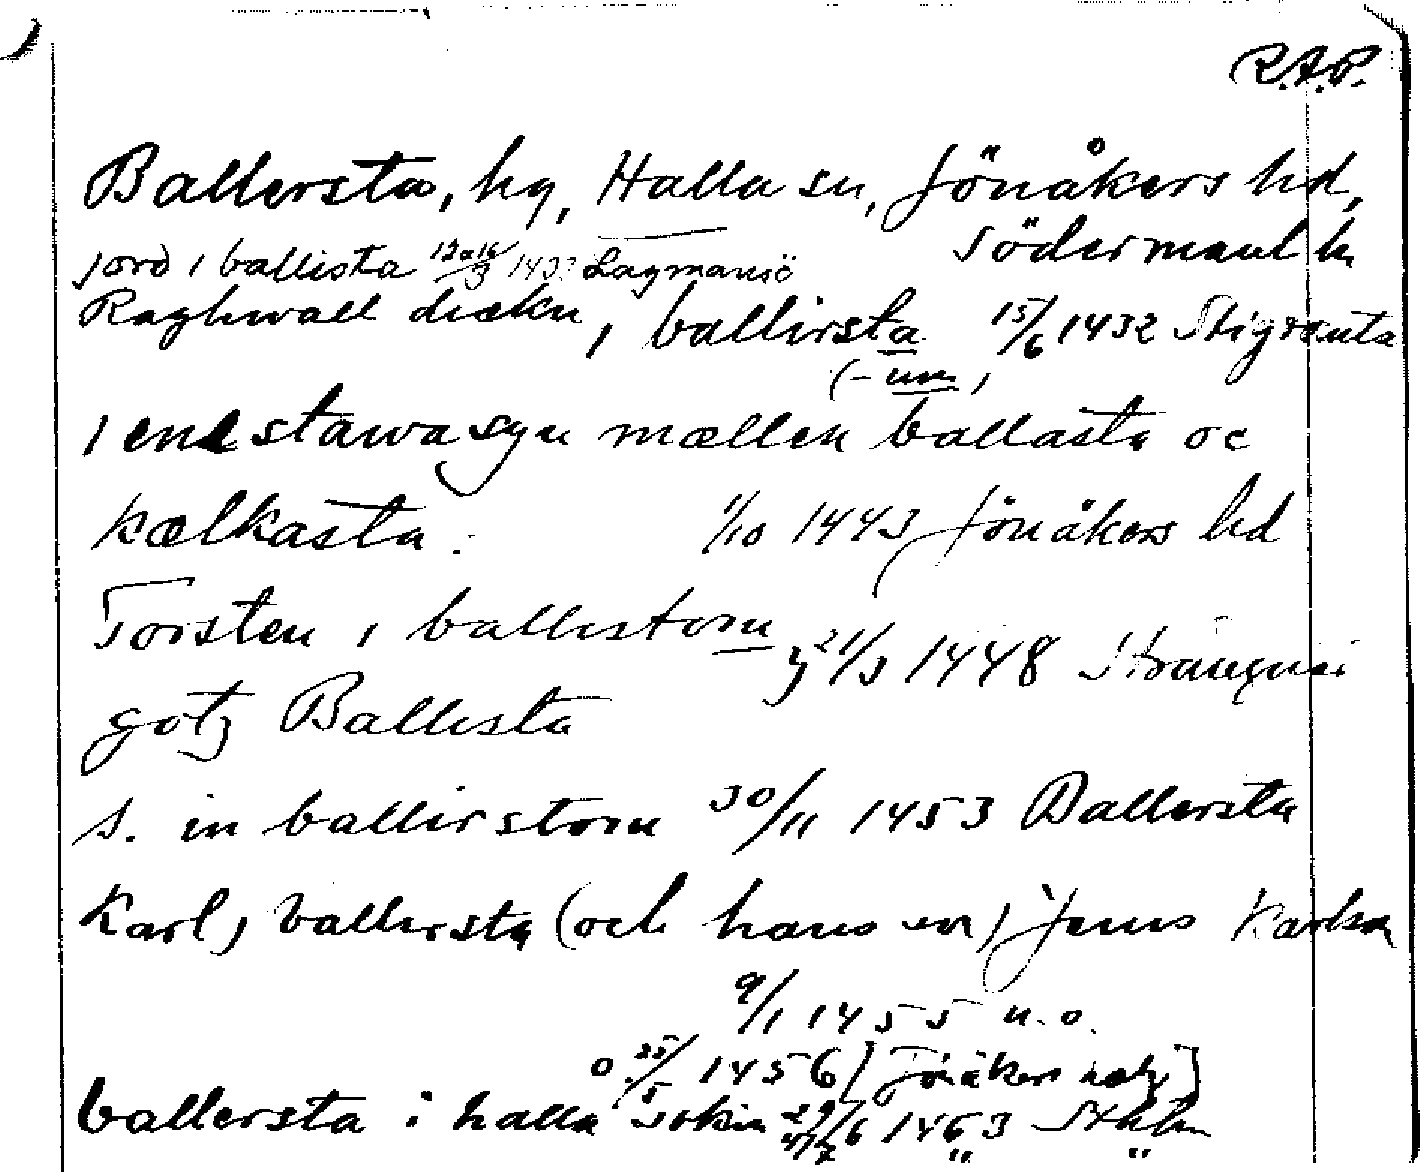 R.A.P.
Ballersta, hg, Halla sn, Jönåkers hd,
Södermanl ln
jord i ballista Lagmansö
Raghwall diækn, i ballirsta 15/6 1432 Stigtomta
(-um)
i ene stawasyn mællen ballasta oc
kælkasta. 1/10 1443 Jönåkers hd
Torsten i ballistom
21/3 1448 Strängnäs
gotz Ballista
s. in ballirstom 30/11 1453 Ballersta
Karl i ballirsta (och hans son) Jenis Karlson
9/1 1455 u.o.
o 25/5 1456 [Jönåkers
ballersta i halla sokn 29/6 1463 Sthlm
" "